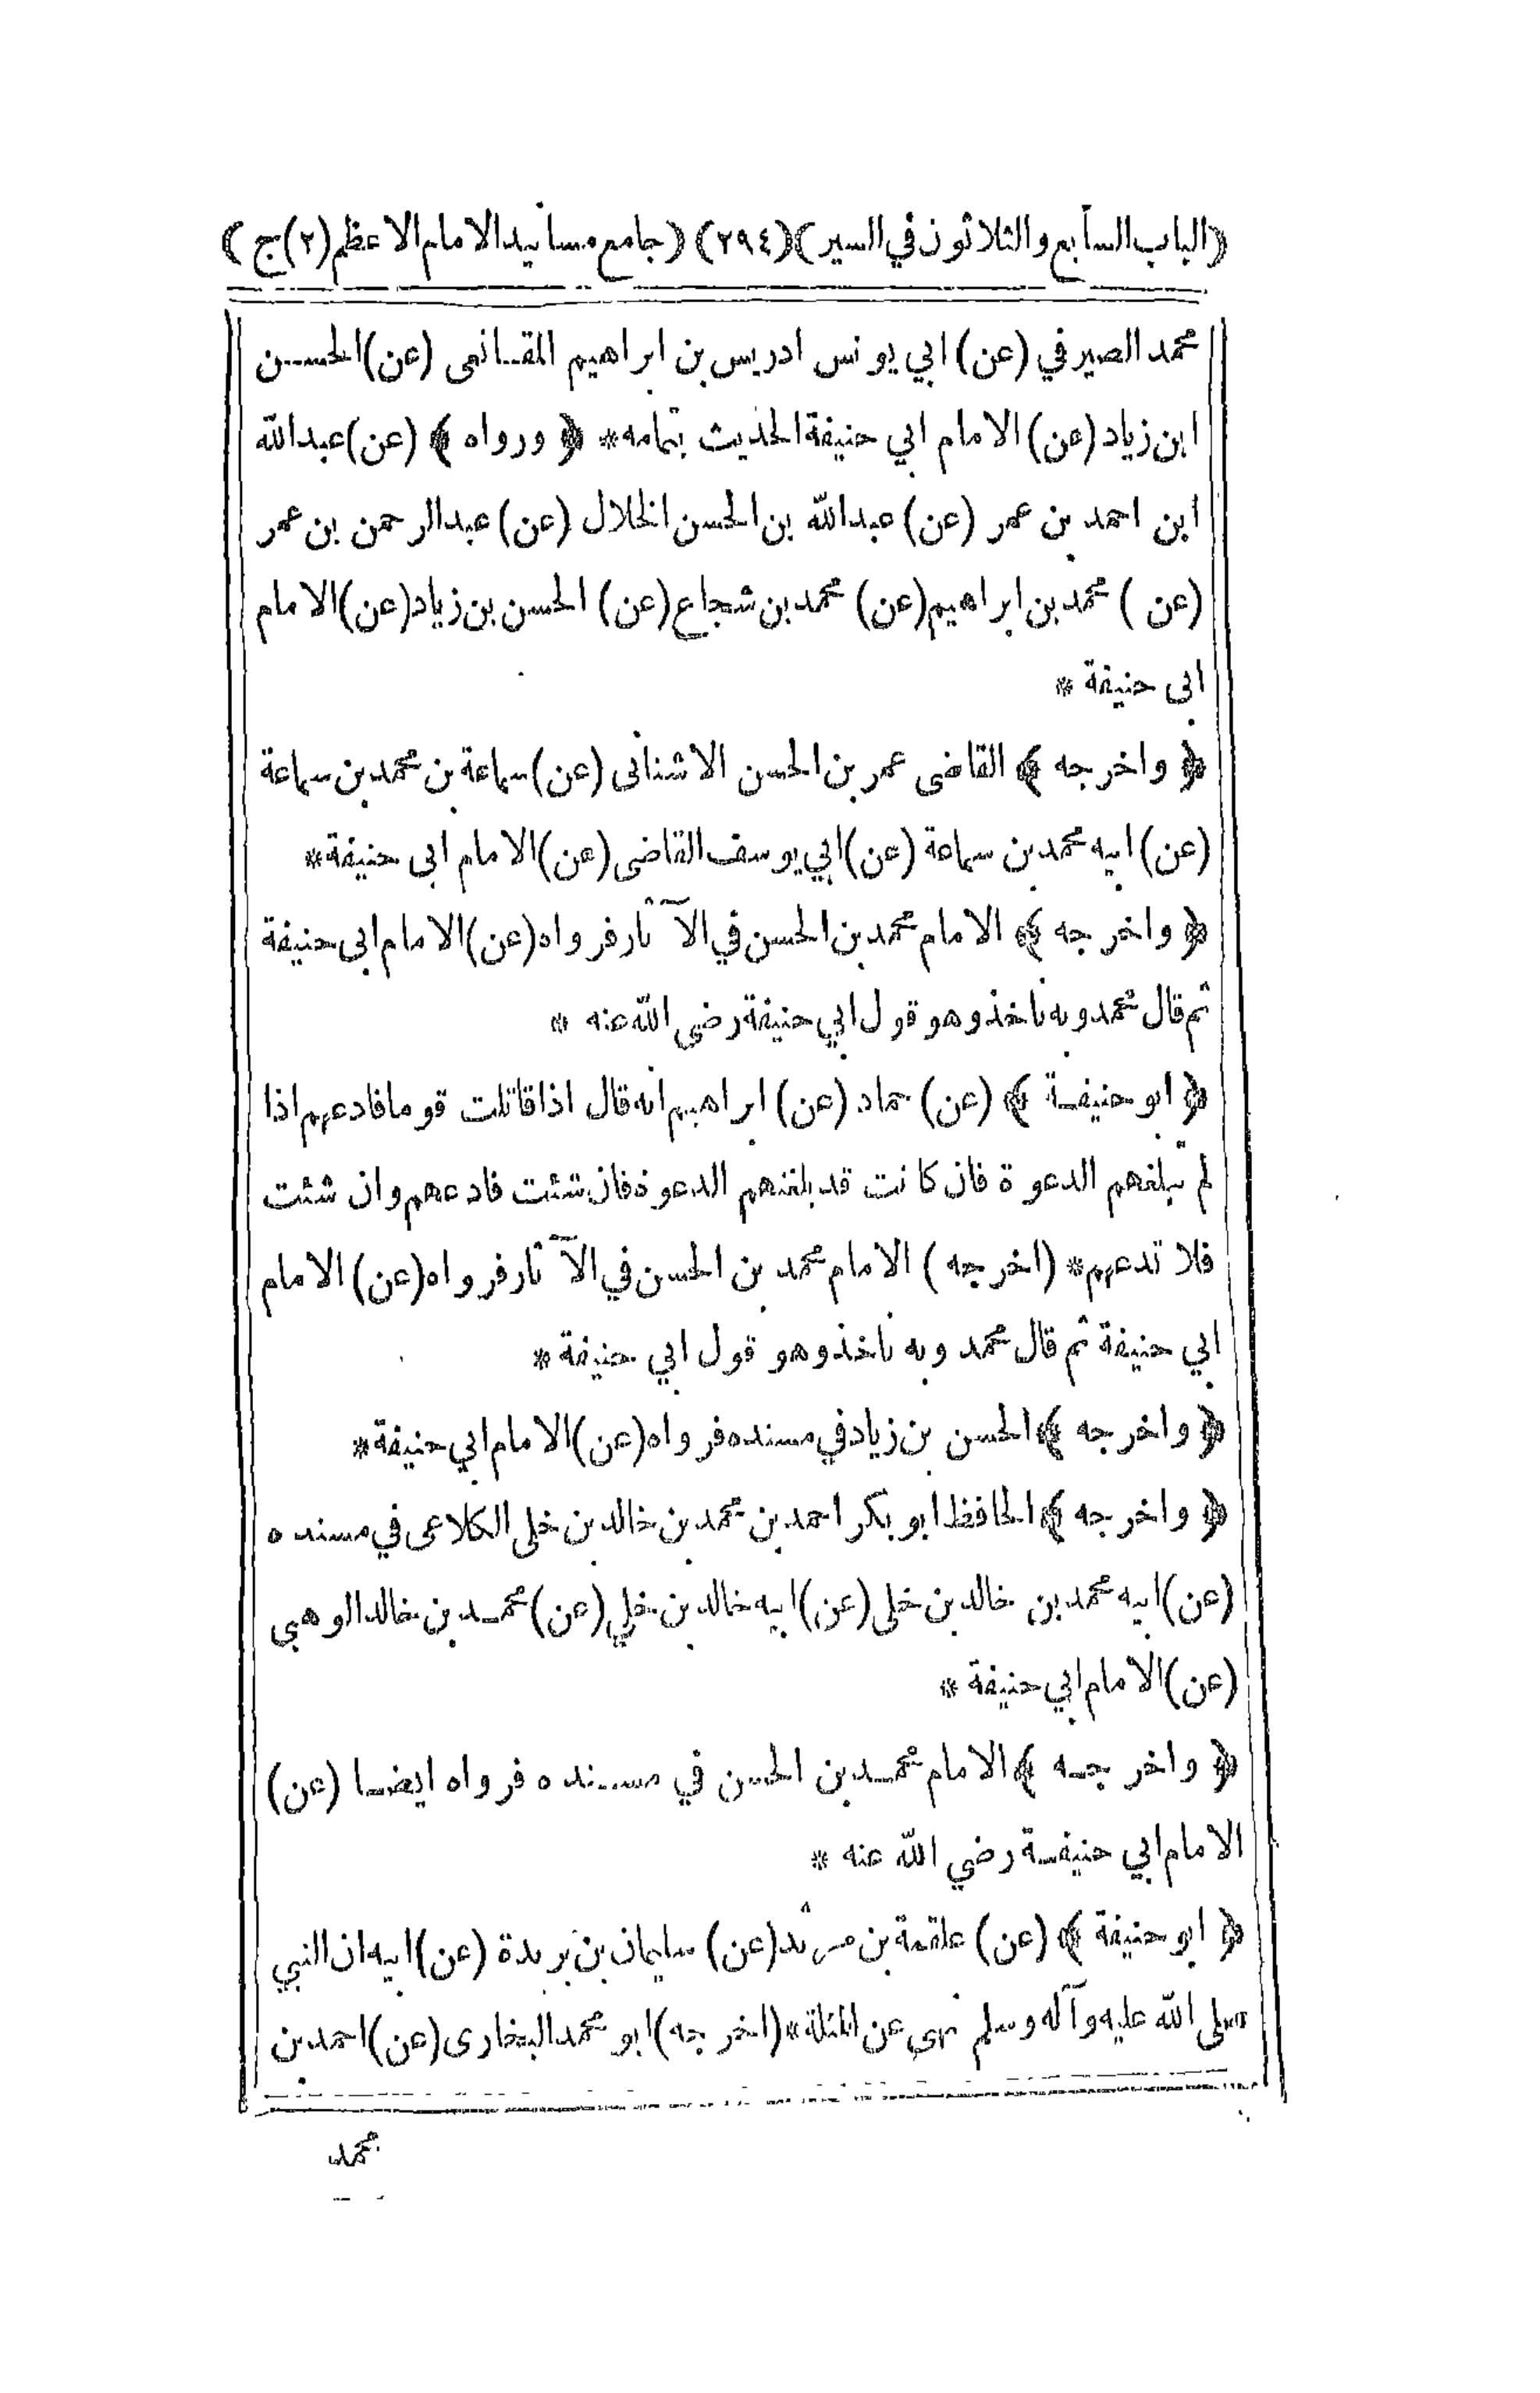 ﴿الباب السابع والثلاثون في السير﴾ (٢٩٤) ﴿جامع مسانيد الامام الاعظم (٢) ج﴾
محمد الصيرفي (عن) ابي يونس ادريس بن ابراهيم المقانعي (عن) الحسن
ابن زياد (عن) الامام ابي حنيفة الحديث بتمامه * ﴿ ورواه ﴾ (عن) عبدالله
ابن احمد بن عمر (عن) عبدالله بن الحسن الخلال (عن) عبدالرحمن بن عمر
(عن) محمد بن ابراهيم (عن) محمد بن شجاع (عن) الحسن بن زياد (عن) الامام
ابي حنيفة *
﴿ واخرجه ﴾ القاضى عمر بن الحسن الاشنانى (عن) سماعة بن محمد بن سماعة
(عن) ابيه محمد بن سماعة (عن) ابي يوسف القاضى (عن) الامام ابى حنيفة *
﴿ واخرجه ﴾ الامام محمد بن الحسن في الآثار فرواه (عن) الامام ابى حنيفة
ثم قال محمد وبه ناخذ وهو قول ابي حنيفة رضي الله عنه *
﴿ ابو حنيفة ﴾ (عن) حماد (عن) ابراهيم انه قال اذا قاتلت قوما فادعهم اذا
لم تبلغهم الدعوة فان كانت قد بلغتهم الدعوة فان شئت فادعهم وان شئت
فلا تدعهم * (اخرجه) الامام محمد بن الحسن في الآثار فرواه (عن) الامام
ابي حنيفة ثم قال محمد وبه ناخذ وهو قول ابي حنيفة *
﴿ واخرجه ﴾ الحسن بن زياد في مسنده فرواه (عن) الامام ابي حنيفة *
﴿ واخرجه ﴾ الحافظ ابو بكر احمد بن محمد بن خالد بن خلى الكلاعى في مسنده
(عن) ابيه محمد بن خالد بن خلى (عن) ابيه خالد بن خلي (عن) محمد بن خالد الوهبي
(عن) الامام ابي حنيفة *
﴿ واخرجه ﴾ الامام محمد بن الحسن في مسنده فرواه ايضا (عن)
الامام ابي حنيفة رضي الله عنه *
﴿ ابو حنيفة ﴾ (عن) علقمة بن مرثد (عن) سليمان بن بريدة (عن) ابيه ان النبي
صلى الله عليه وآله وسلم نهى عن المثلة * (اخرجه) ابو محمد البخارى (عن) احمد بن
محمد